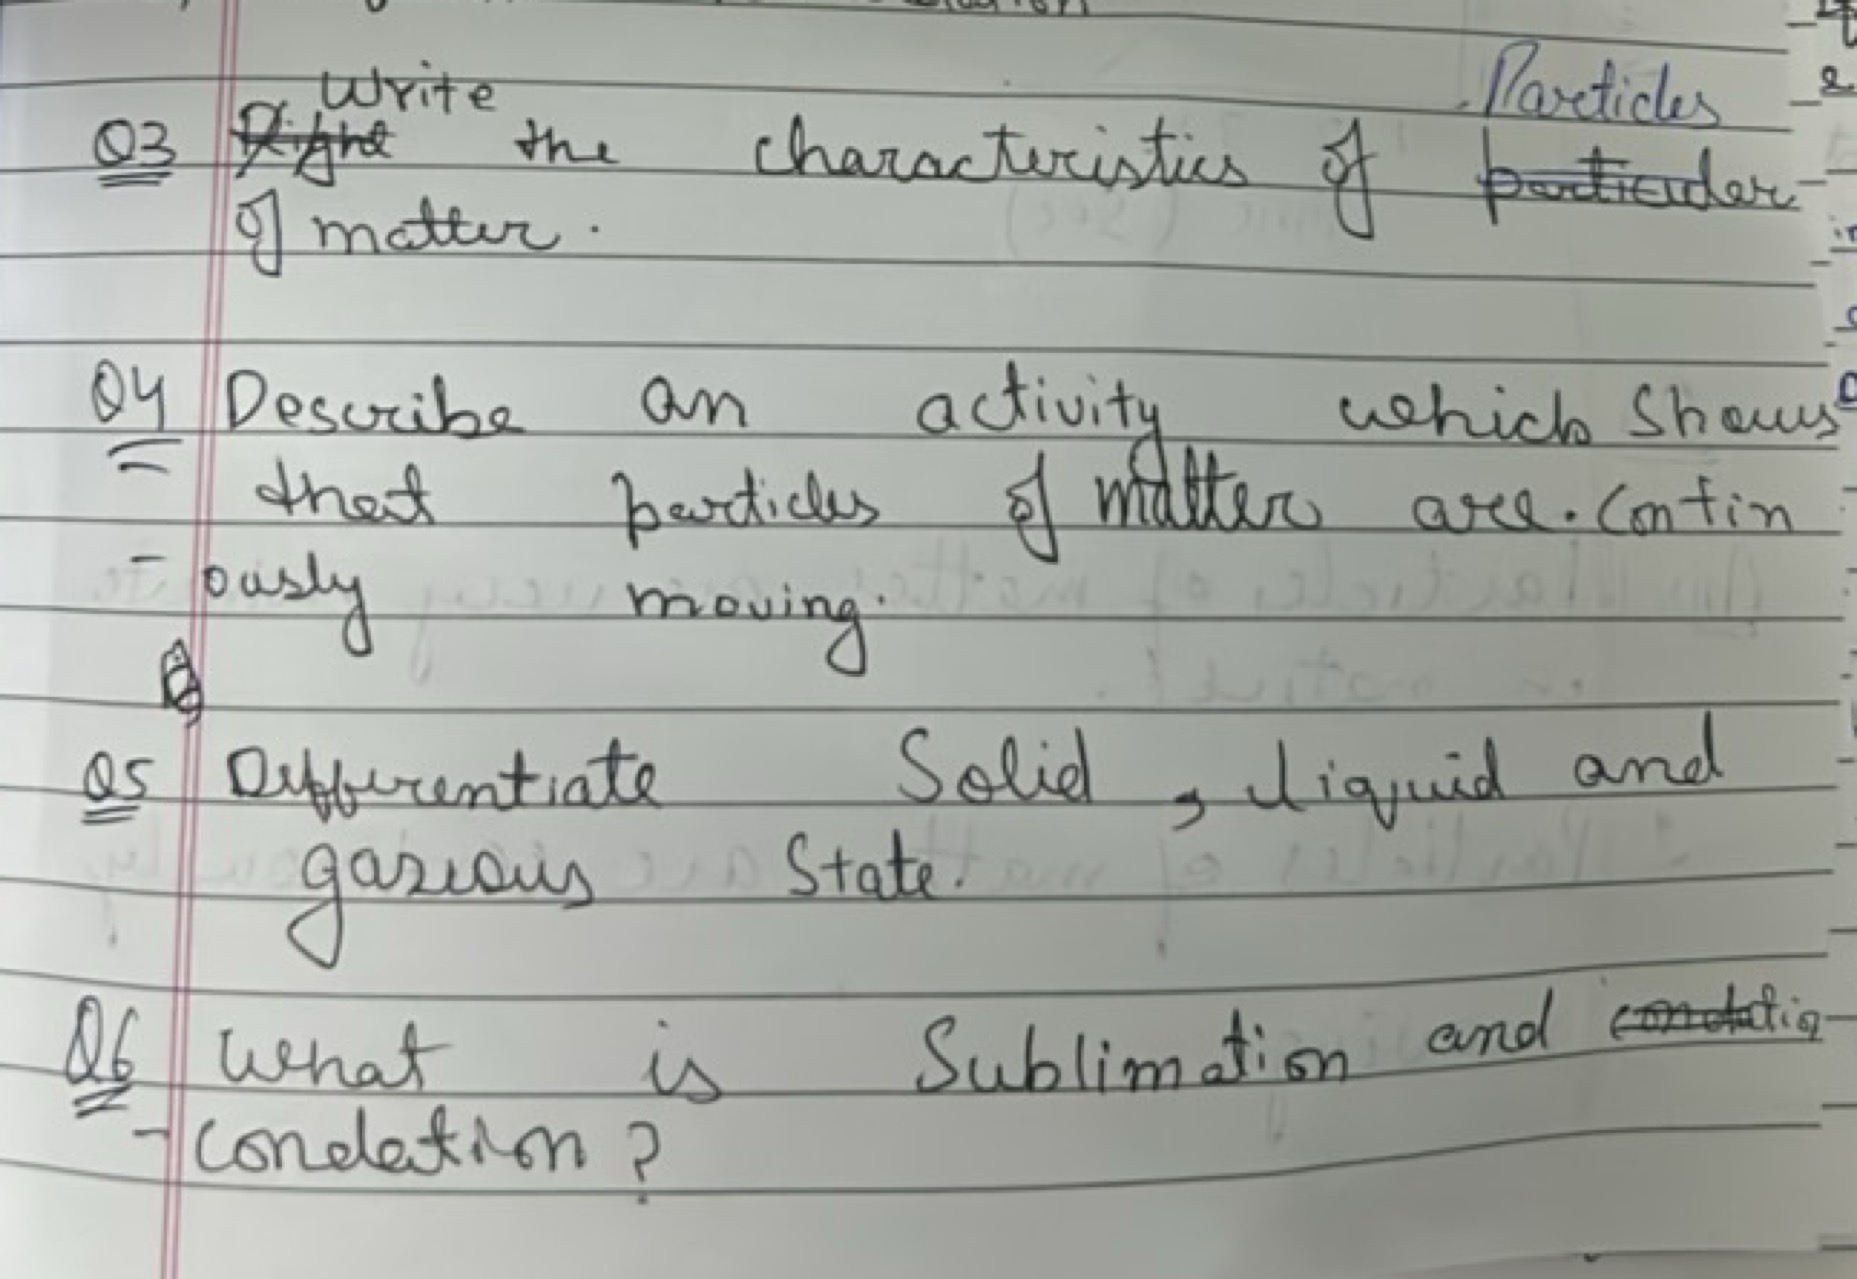 Q3 Write the characteristics of Particles
of matter.
Q4 Describe an activity which shows
that particles of matter are. contin
- ously moving.
Q5 Differentiate Solid, liquid and
gazeous State.
Q6 What is Sublimation and
- condetion?